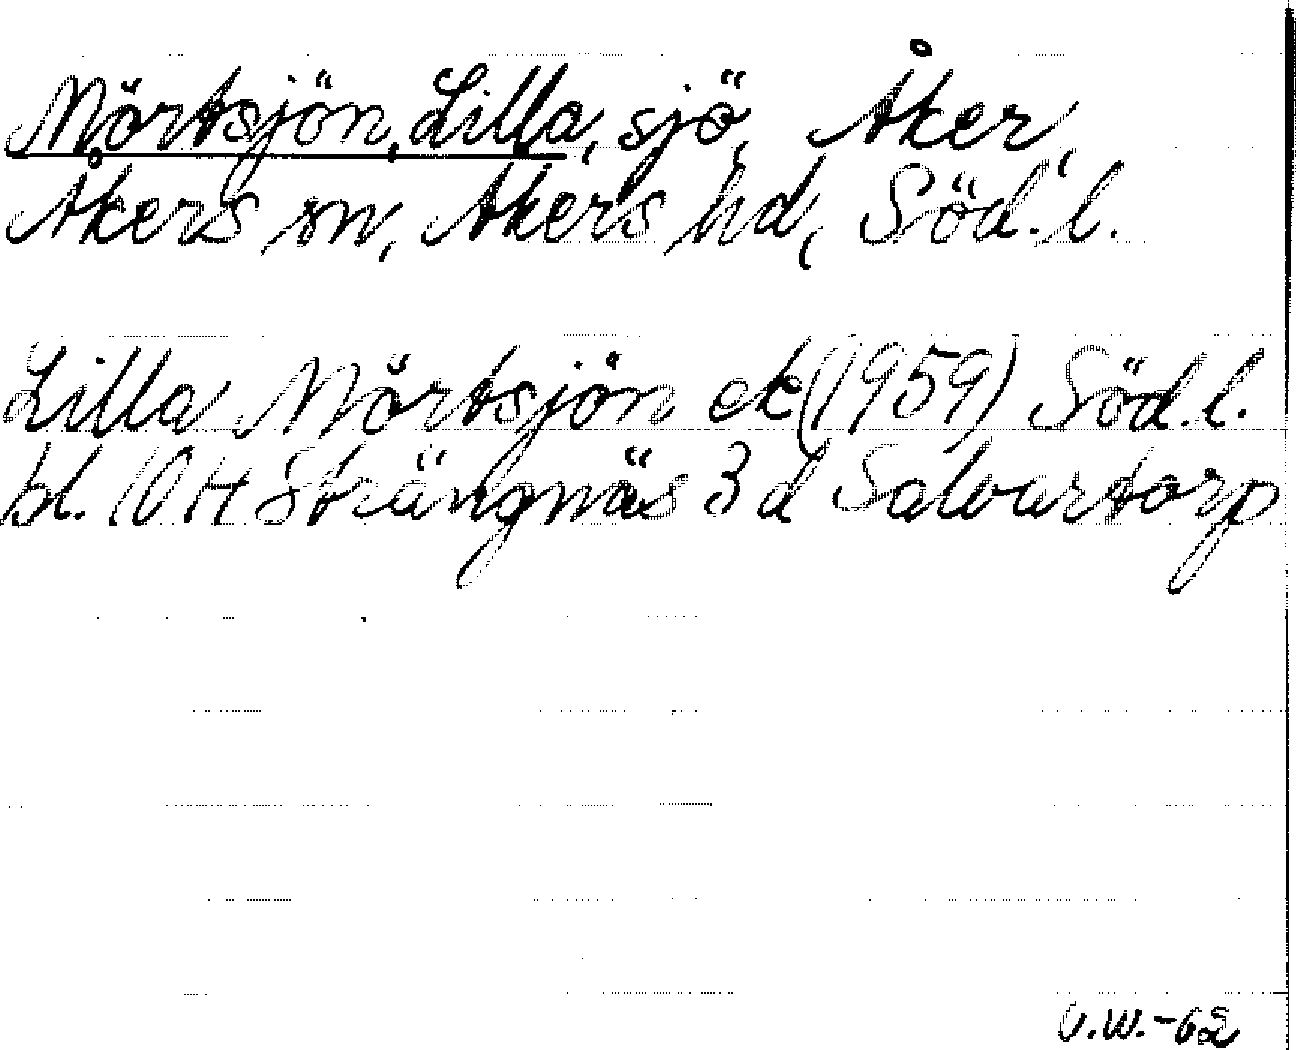 Mörtsjön, Lilla, sjö, Åker,
Åkers sn, Åkers hd, Söd. l.
Lilla Mörtsjön ek (1959) Söd. l.
bl. 10 H Strängnäs 3 d Salvartorp
U.W.-62